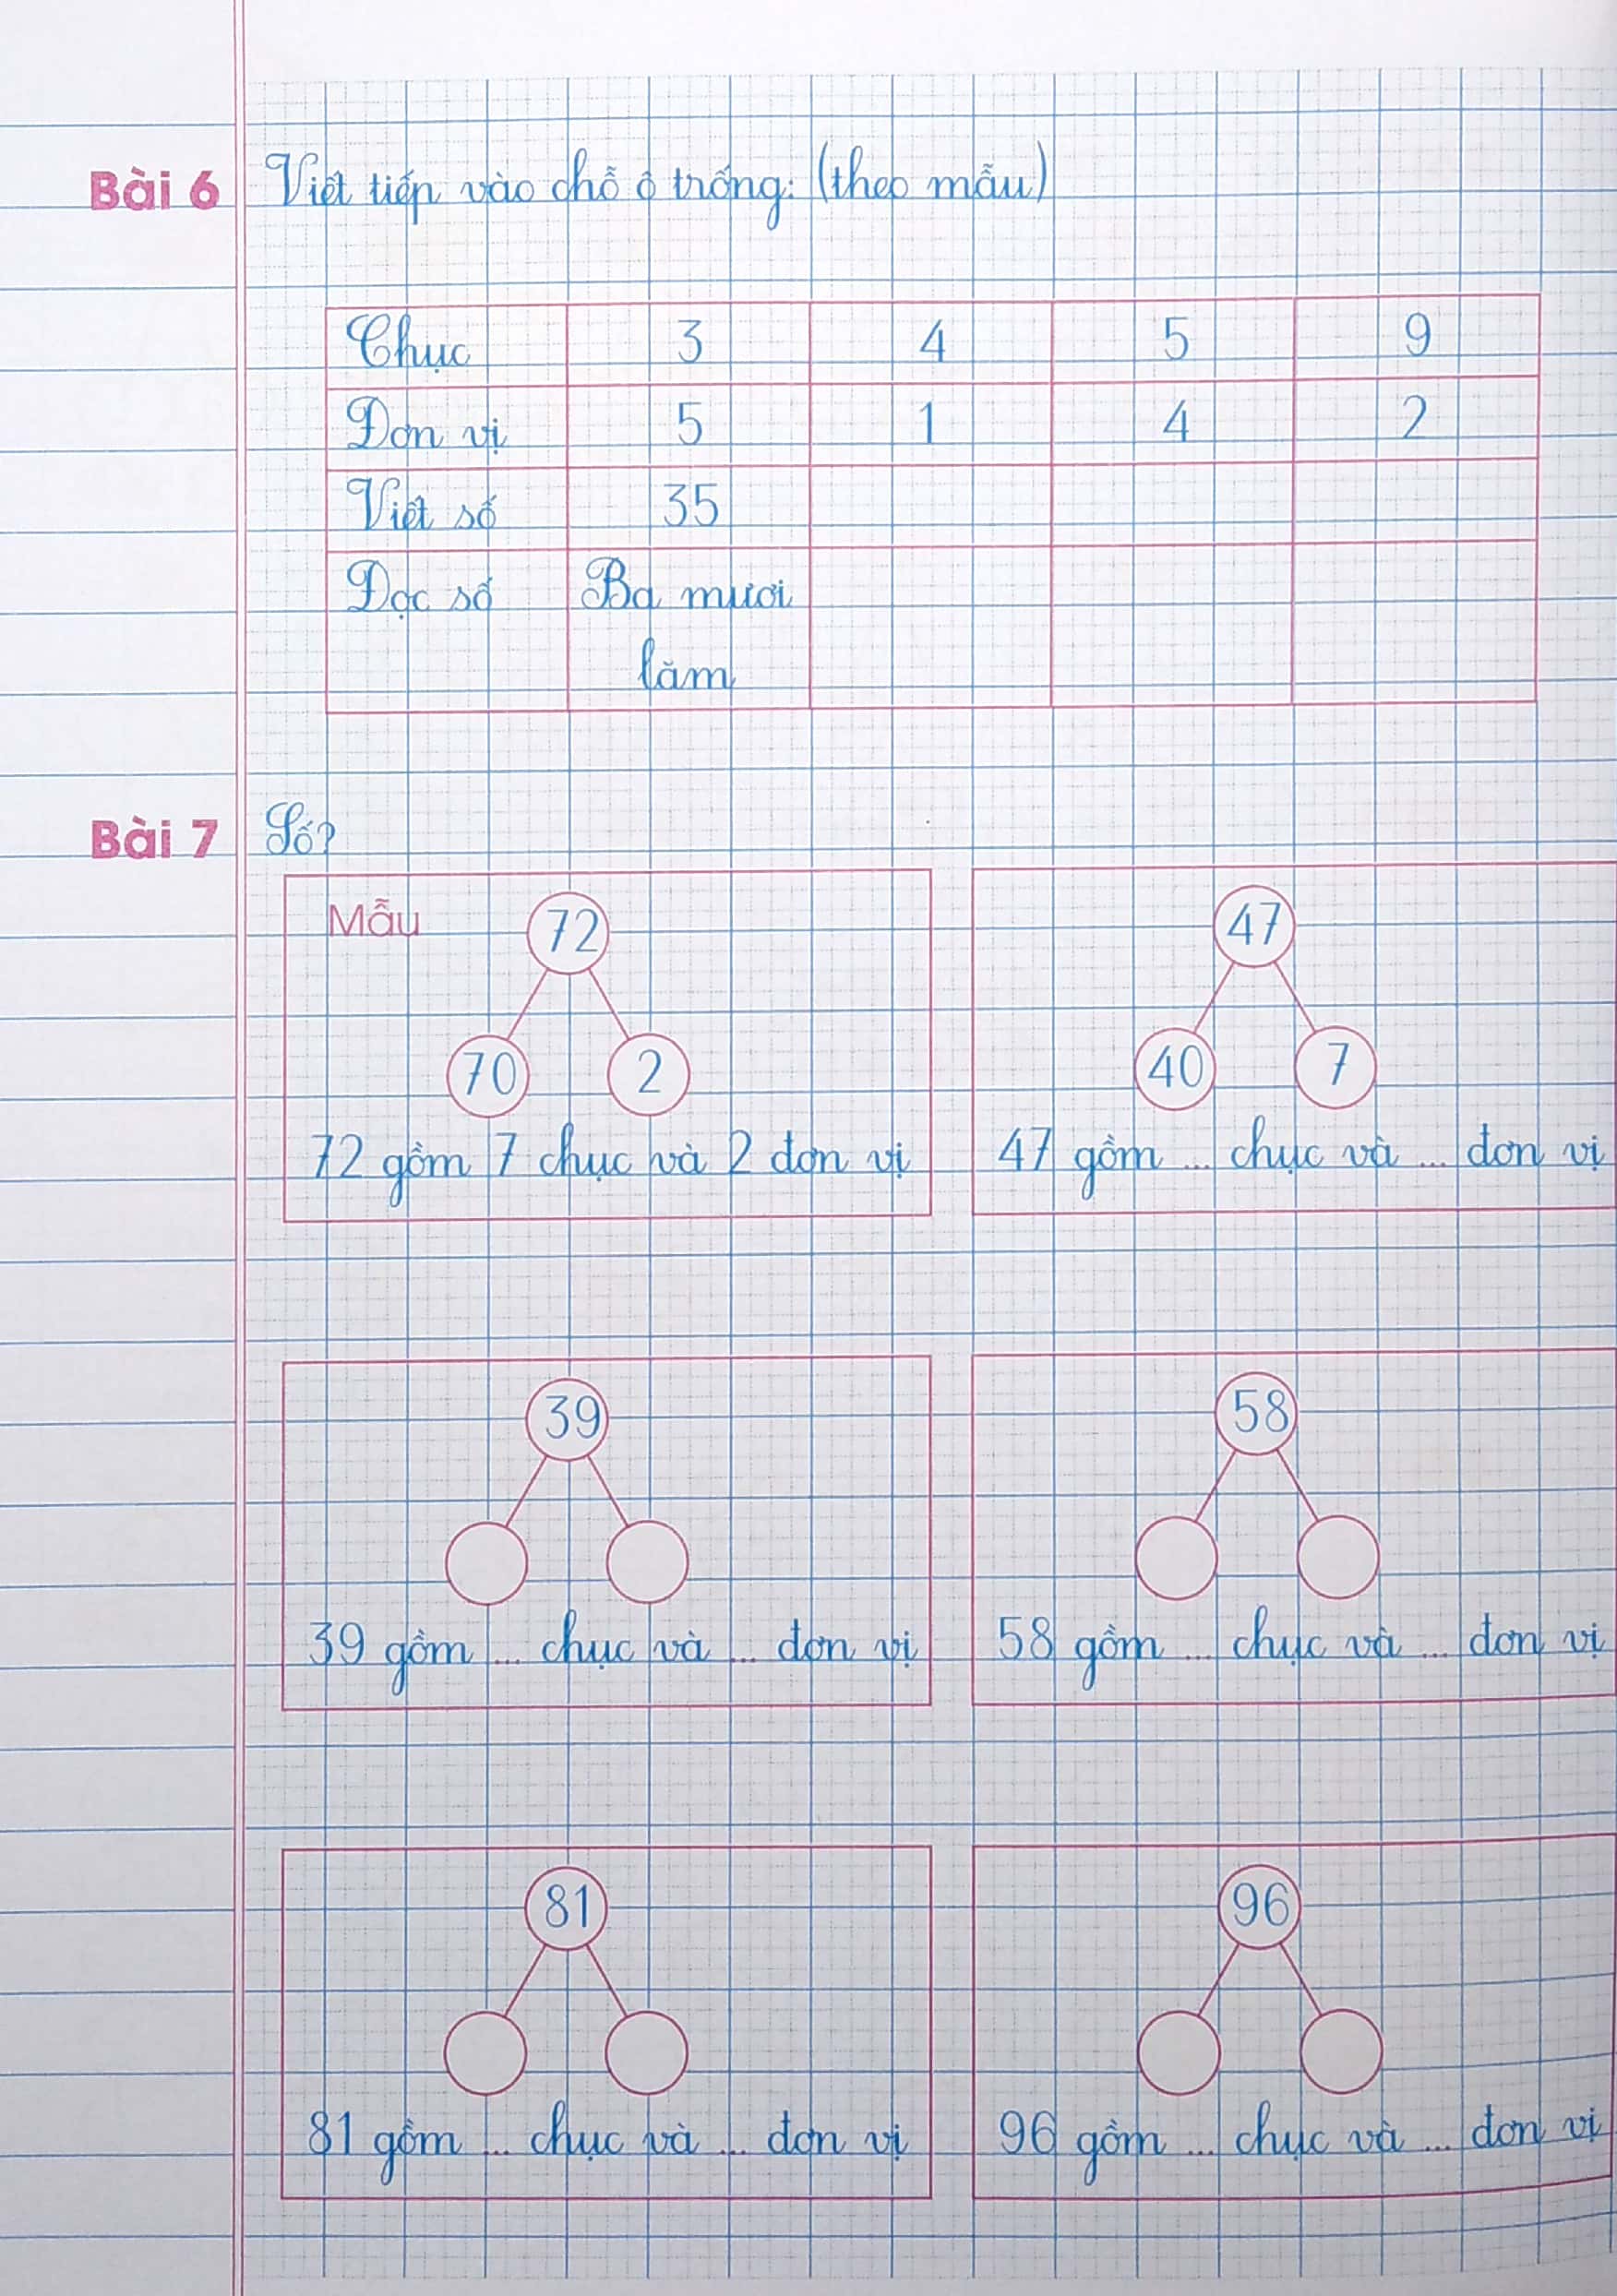 Bài 6 Viết tiếp vào chỗ ô trống: (theo mẫu)
Chục 3 4 5 9
Đơn vị 5 1 4 2
Viết số 35
Đọc số Ba mươi
lăm
Bài 7 Số?
Mẫu 72
70 2
72 gồm 7 chục và 2 đơn vị
47
40 7
47 gồm ... chục và ... đơn vị
39
39 gồm ... chục và ... đơn vị
58
58 gồm ... chục và ... đơn vị
81
81 gồm ... chục và ... đơn vị
96
96 gồm ... chục và ... đơn vị